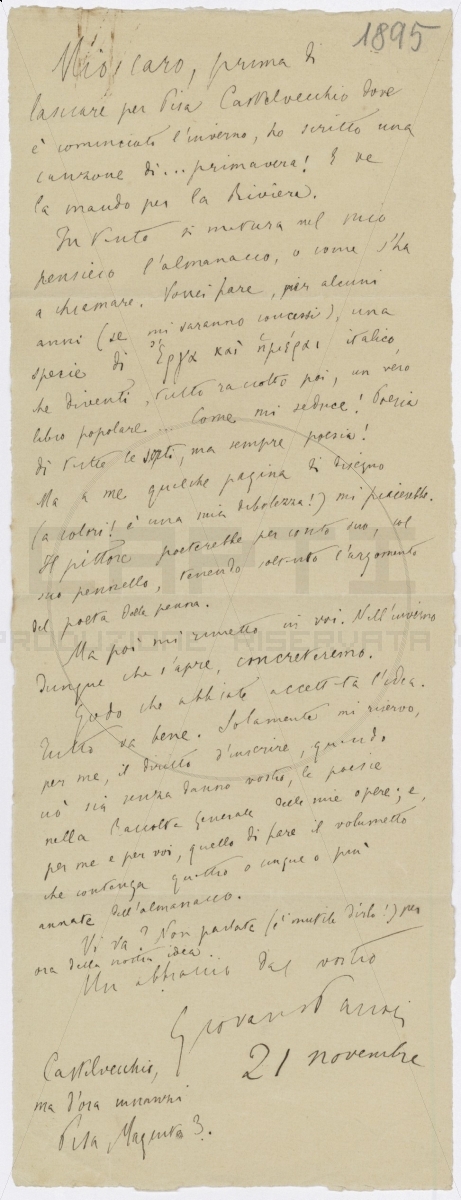 1895
Mio caro, prima di
lasciare per Pisa Castelvecchio dove
è cominciato l'inverno, ho scritto una
canzone di... primavera! E ve
la mando per la Riviera.
Intanto si matura nel mio
pensiero l'almanacco, o come s'ha
a chiamare. Vorrei fare, per alcuni
anni (se mi saranno concessi), una
spezie di Ἔργα καὶ ἡμέραι italico,
che diventi, tutto raccolto poi, un vero
libro popolare... Come mi seduce! Poesia
di tutte le sorti, ma sempre poesia!
Ma a me qualche pagina di disegno
(a colori! è una mia debolezza!) mi piacerebbe.
Il pittore poeterebbe per conto suo, col
suo pennello, tenendo soltanto l'argomento
del poeta dalla penna.
Ma poi mi rimetto in voi. Nell'inverno
dunque che s'apre, concreteremo.
Godo che abbiate accettata l'idea.
Tutto va bene. Solamente mi riservo,
per me, il diritto d'inscrire, quando
ciò sia senza danno vostro, le poesie
nella Raccolta generale delle mie opere; e,
per me e per voi, quello di fare il volumetto
che contenga quattro o cinque o più
annate dell'almanacco.
Vi va? Non parlate (è inutile dirlo!) per
ora della nostra idea.
Un abbraccio dal vostro
Giovanni Pascoli
21 novembre
Castelvecchio,
ma d'ora innanzi
Pisa Magenta 3.
RIPRODUZIONE RISERVATA